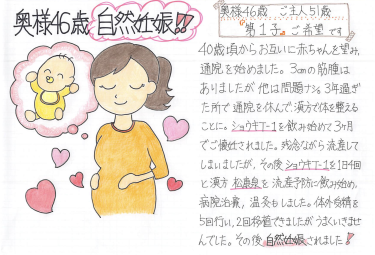 奥様46歳 自然妊娠!!
奥様46歳 ご主人51歳
第1子 ご希望です
40歳頃からお互いに赤ちゃんを望み、
通院を始めました。3cmの筋腫は
ありましたが他は問題ナシ。3年過ぎ
た所で通院を休んで、漢方で体を整える
ことに。ショウキT-1を飲み始めて3ヶ月
でご懐妊されました。残念ながら流産して
しまいましたが、その後ショウキT-1を1日4回
と漢方 松康泉を流産予防に飲み始め、
病院治療、温灸もしました。体外受精を
5回行い、2回移着できましたがうまくいきませ
んでした。その後 自然妊娠されました!!